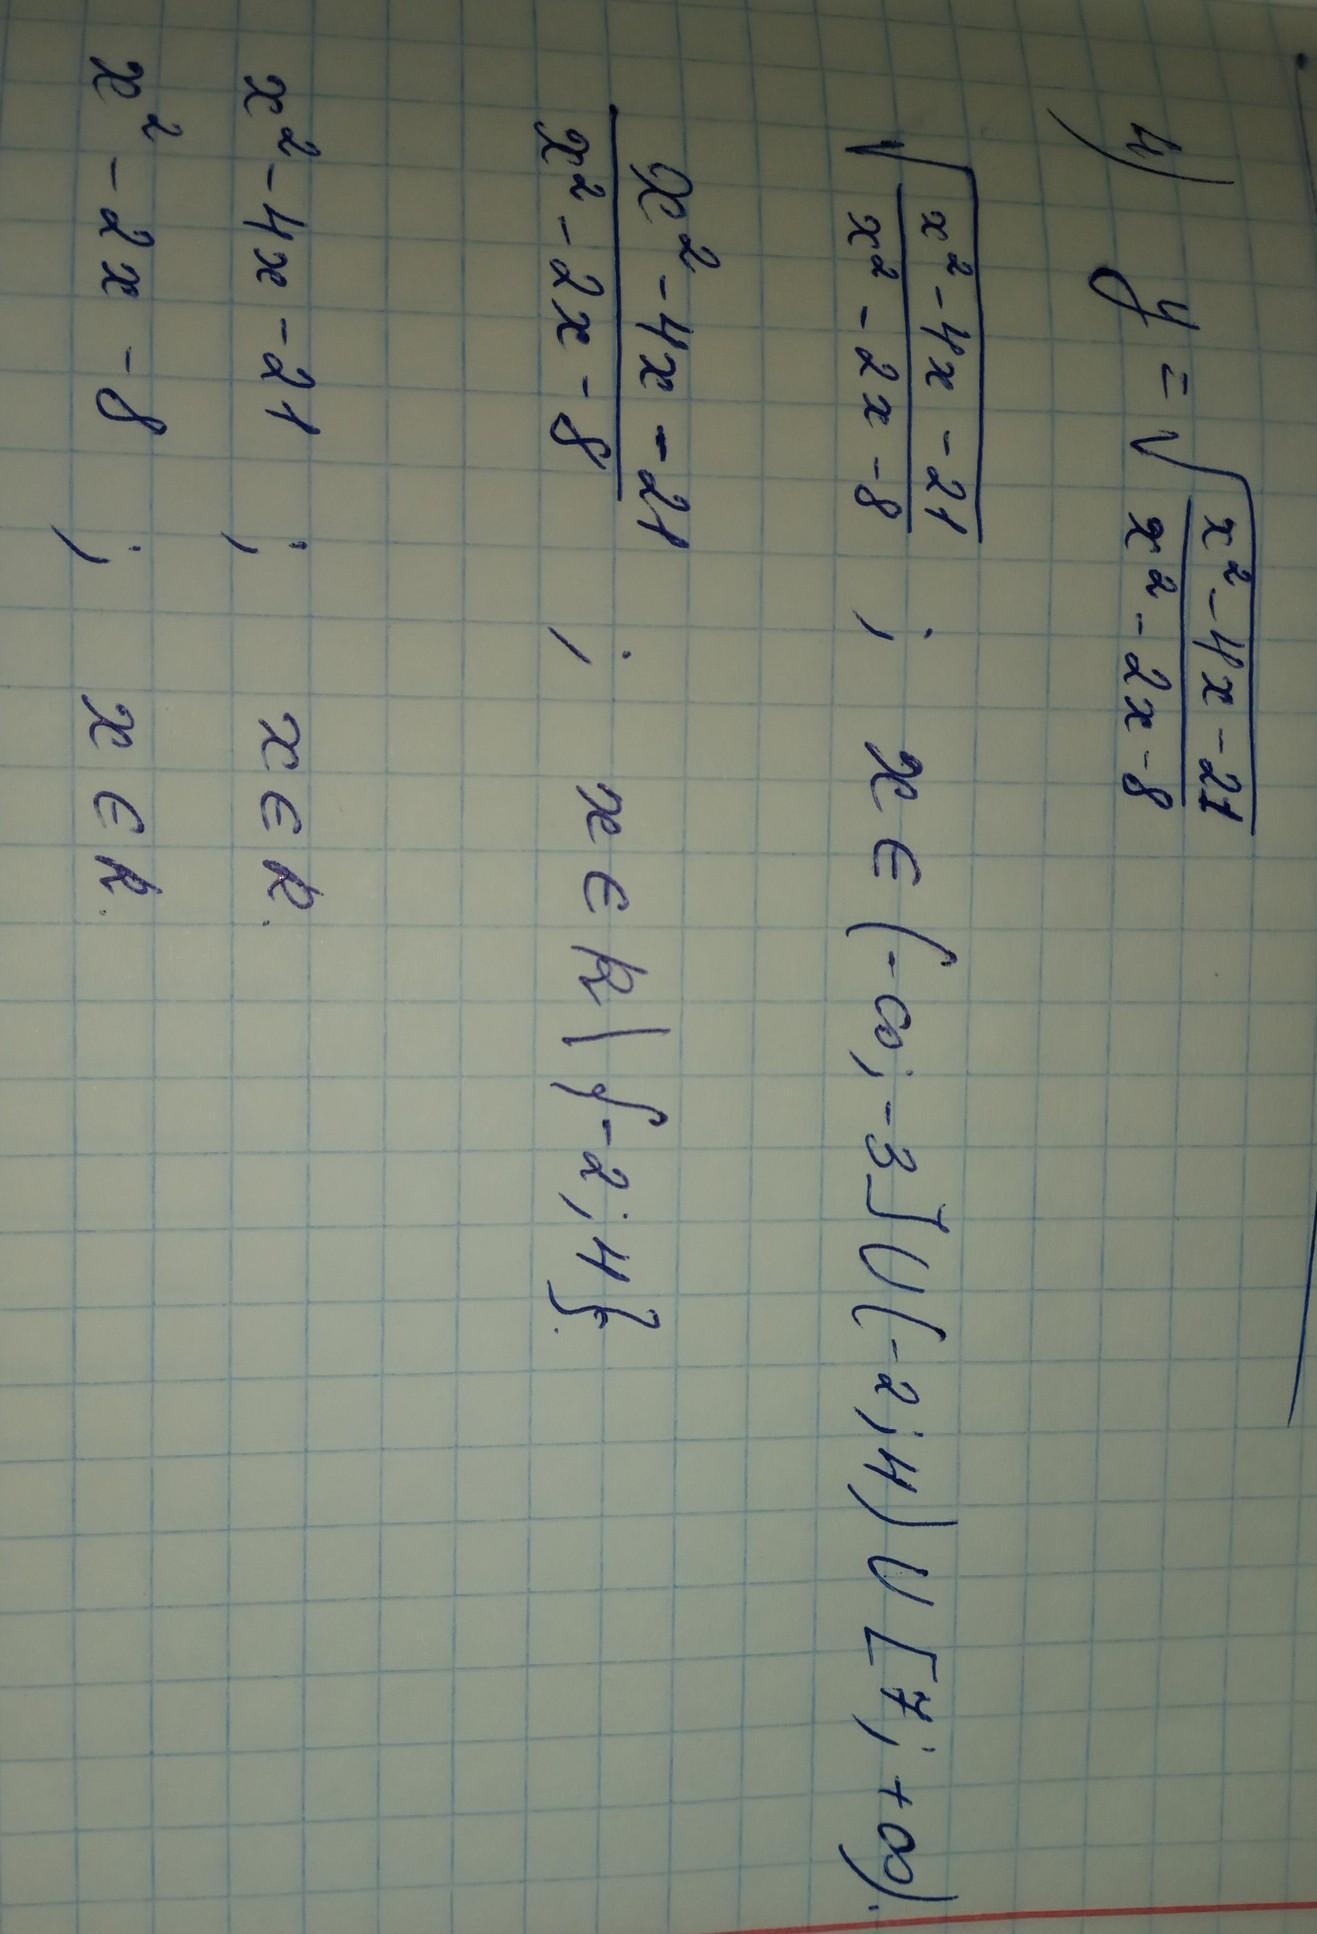 4) y = √((x² - 4x - 21)/(x² - 2x - 8))
√((x² - 4x - 21)/(x² - 2x - 8)) ; x ∈ (-∞; -3] ∪ (-2; 4) ∪ [7; +∞).
(x² - 4x - 21)/(x² - 2x - 8) ; x ∈ R \ {-2; 4}.
x² - 4x - 21 ; x ∈ R.
x² - 2x - 8 ; x ∈ R.